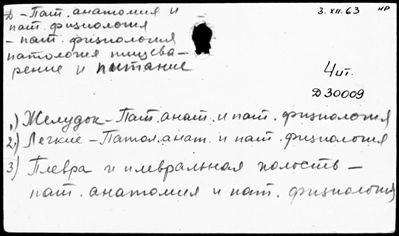 D - Пат. анатомия и
пат. физиология
- пат. физиология
патология пищева-
рение и питание
3.XII.63 НР
4 шт.
D 30009
1) Желудок - Пат. анат. и пат. физиология
2) Легкие - Патол. анат. и пат. физиология
3) Плевра и плевральная полость -
пат. анатомия и пат. физиология